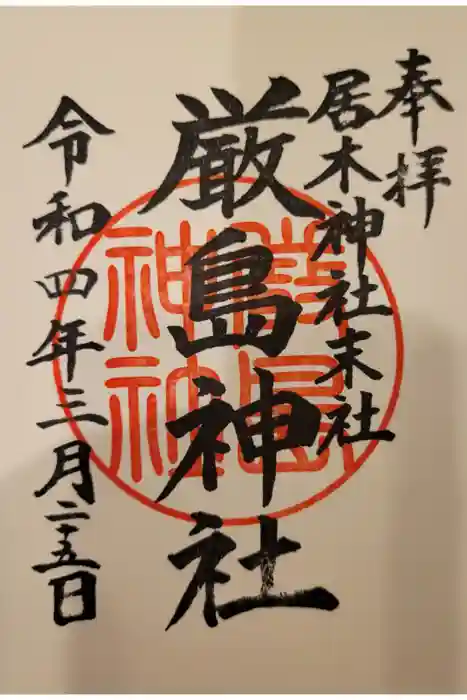 奉拝
居木神社末社
厳島神社
令和四年三月二十五日